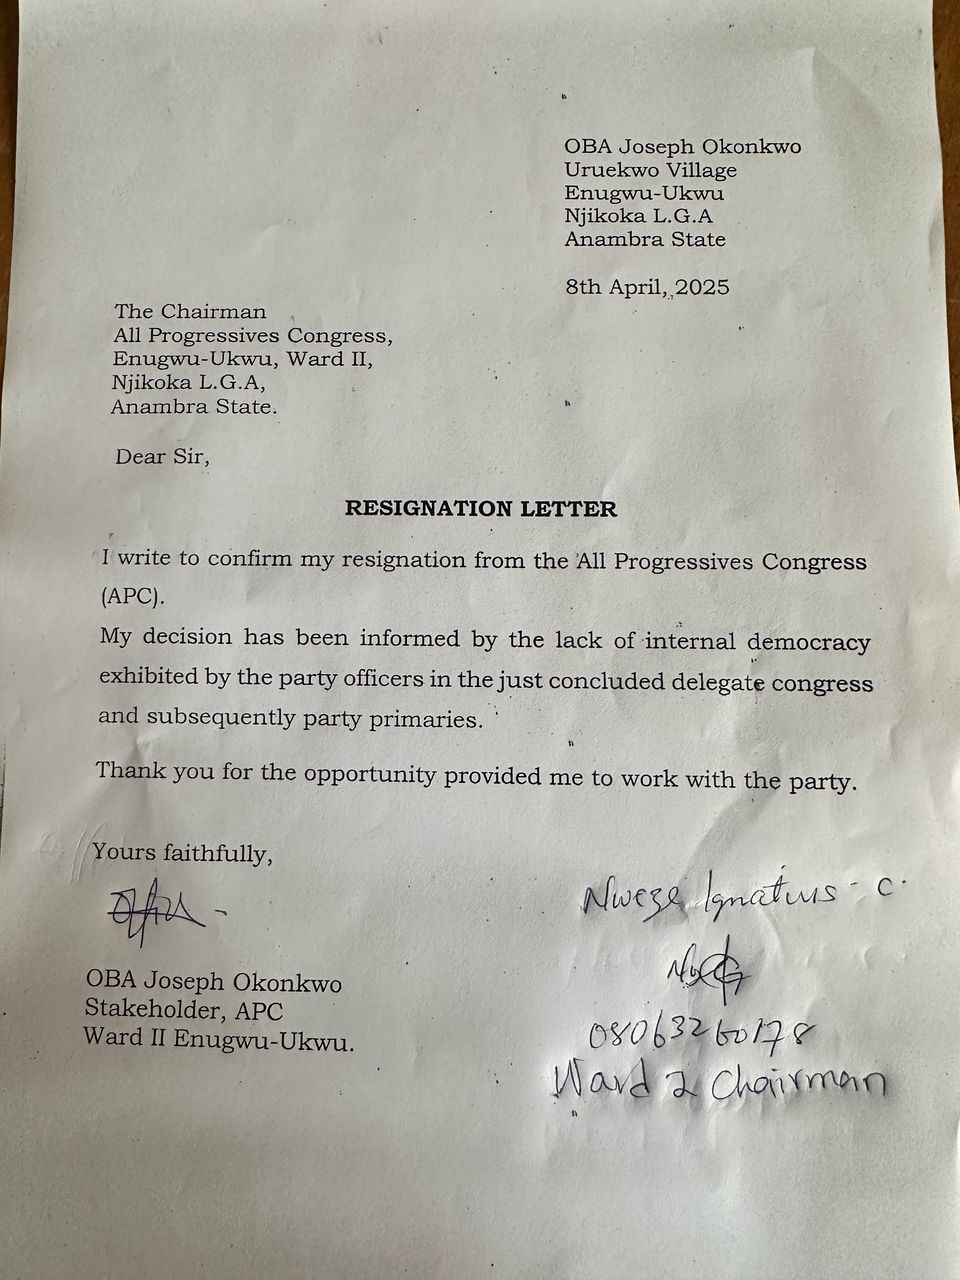 OBA Joseph Okonkwo
Uruekwo Village
Enugwu-Ukwu
Njikoka L.G.A
Anambra State
8th April, 2025
The Chairman
All Progressives Congress,
Enugwu-Ukwu, Ward II,
Njikoka L.G.A,
Anambra State.
Dear Sir,
RESIGNATION LETTER
I write to confirm my resignation from the All Progressives Congress
(APC).
My decision has been informed by the lack of internal democracy
exhibited by the party officers in the just concluded delegate congress
and subsequently party primaries.
Thank you for the opportunity provided me to work with the party.
Yours faithfully,
OBA Joseph Okonkwo
Stakeholder, APC
Ward II Enugwu-Ukwu.
Nweze Ignatius - C.
08063260178
Ward 2 Chairman